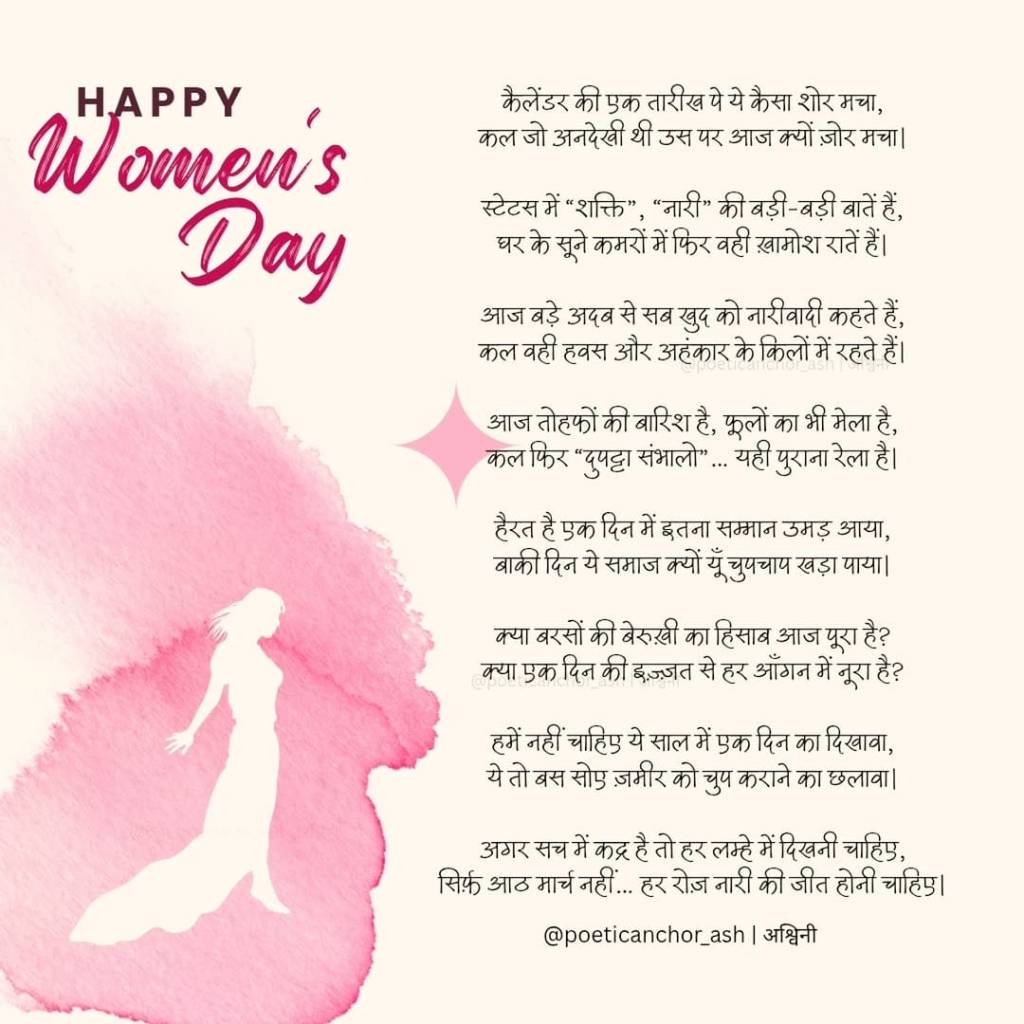 HAPPY
Women's
Day
कैलेंडर की एक तारीख पे ये कैसा शोर मचा,
कल जो अनदेखी थी उस पर आज क्यों ज़ोर मचा|
स्टेटस में “शक्ति”, “नारी” की बड़ी-बड़ी बातें हैं,
घर के सूने कमरों में फिर वही ख़ामोश रातें हैं|
आज बड़े अदब से सब खुद को नारीवादी कहते हैं,
कल वही हवस और अहंकार के किलों में रहते हैं|
@poeticanchor_ash | अश्विनी
आज तोहफों की बारिश है, फूलों का भी मेला है,
कल फिर “दुपट्टा संभालो”... यही पुराना रेला है|
हैरत है एक दिन में इतना सम्मान उमड़ आया,
बाकी दिन ये समाज क्यों यूँ चुपचाप खड़ा पाया|
क्या बरसों की बेरुख़ी का हिसाब आज पूरा है?
क्या एक दिन की इज़्ज़त से हर आँगन में नूरा है?
@poeticanchor_ash | अश्विनी
हमें नहीं चाहिए ये साल में एक दिन का दिखावा,
ये तो बस सोए ज़मीर को चुप कराने का छलावा|
अगर सच में कद्र है तो हर लम्हे में दिखनी चाहिए,
सिर्फ़ आठ मार्च नहीं... हर रोज़ नारी की जीत होनी चाहिए|
@poeticanchor_ash | अश्विनी